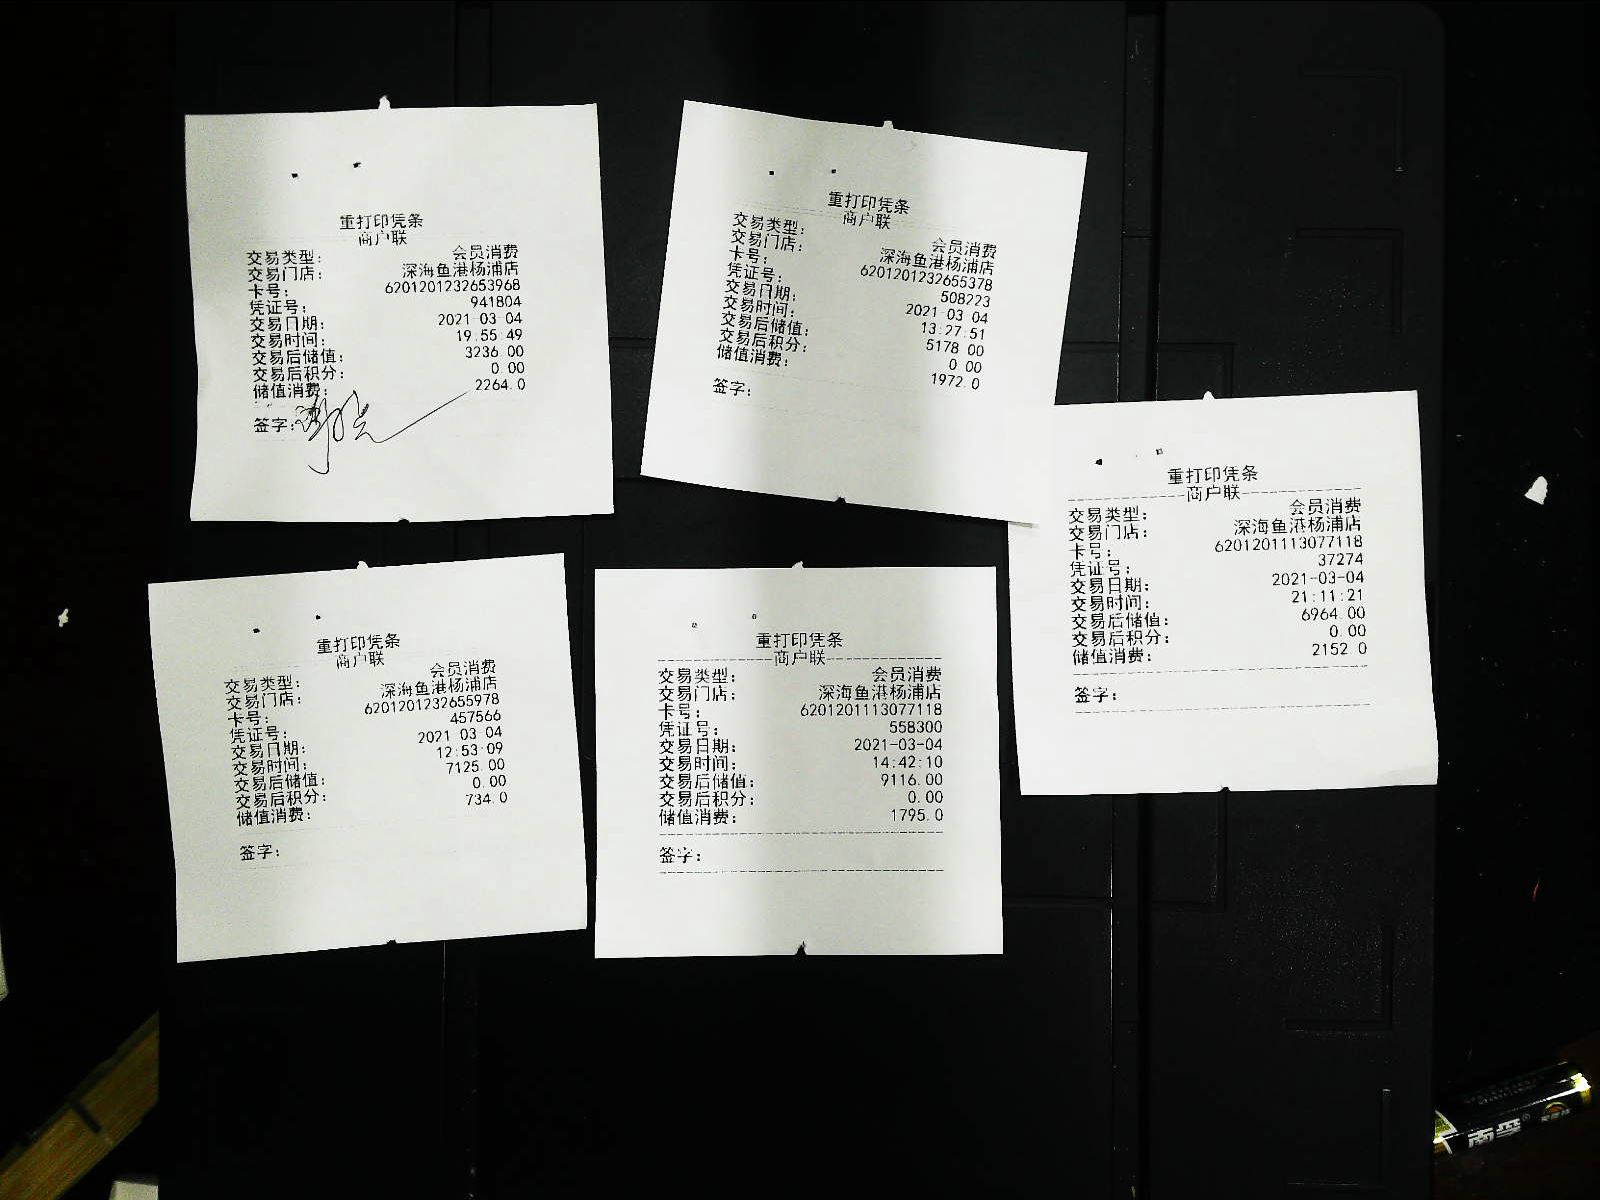 重打印凭条
商户联
交易类型： 会员消费
交易门店： 深海鱼港杨浦店
卡号： 6201201232653968
凭证号： 941804
交易日期： 2021-03-04
交易时间： 19:55:49
交易后储值： 3236.00
交易后积分： 0.00
储值消费： 2264.0
签字：
重打印凭条
商户联
交易类型： 会员消费
交易门店： 深海鱼港杨浦店
卡号： 6201201232655378
凭证号： 508223
交易日期： 2021-03-04
交易时间： 13:27:51
交易后储值： 5178.00
交易后积分： 0.00
储值消费： 1972.0
签字：
重打印凭条
商户联
交易类型： 会员消费
交易门店： 深海鱼港杨浦店
卡号： 6201201113077118
凭证号： 37274
交易日期： 2021-03-04
交易时间： 21:11:21
交易后储值： 6964.00
交易后积分： 0.00
储值消费： 2152.0
签字：
重打印凭条
商户联
交易类型： 会员消费
交易门店： 深海鱼港杨浦店
卡号： 6201201232655978
凭证号： 457566
交易日期： 2021-03-04
交易时间： 12:53:09
交易后储值： 7125.00
交易后积分： 0.00
储值消费： 734.0
签字：
重打印凭条
商户联
交易类型： 会员消费
交易门店： 深海鱼港杨浦店
卡号： 6201201113077118
凭证号： 558300
交易日期： 2021-03-04
交易时间： 14:42:10
交易后储值： 9116.00
交易后积分： 0.00
储值消费： 1795.0
签字：
南孚